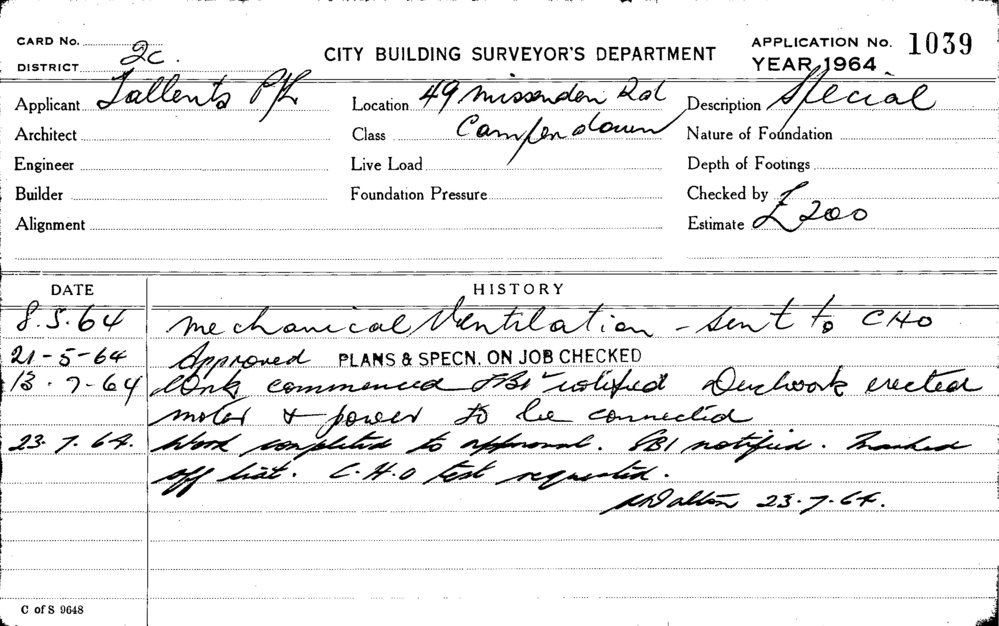 CARD No.
DISTRICT 2c.
CITY BUILDING SURVEYOR'S DEPARTMENT
APPLICATION No. 1039
YEAR 1964
Applicant Tallents P/L
Location 49 Missenden Rd
Description Special
Architect
Class Camperdown
Nature of Foundation
Engineer
Live Load
Depth of Footings
Builder
Foundation Pressure
Checked by
Alignment
Estimate £200
DATE HISTORY
8.5.64 Mechanical Ventilation - Sent to CHO
21-5-64 Approved PLANS & SPECN. ON JOB CHECKED
13-7-64 Work commenced notified Ductwork erected
motor & power to be connected
23.7.64. Work completed to approval. PBI notified. Marked
off list. C.H.O test requested.
Dalton 23.7.64.
C of S 9648